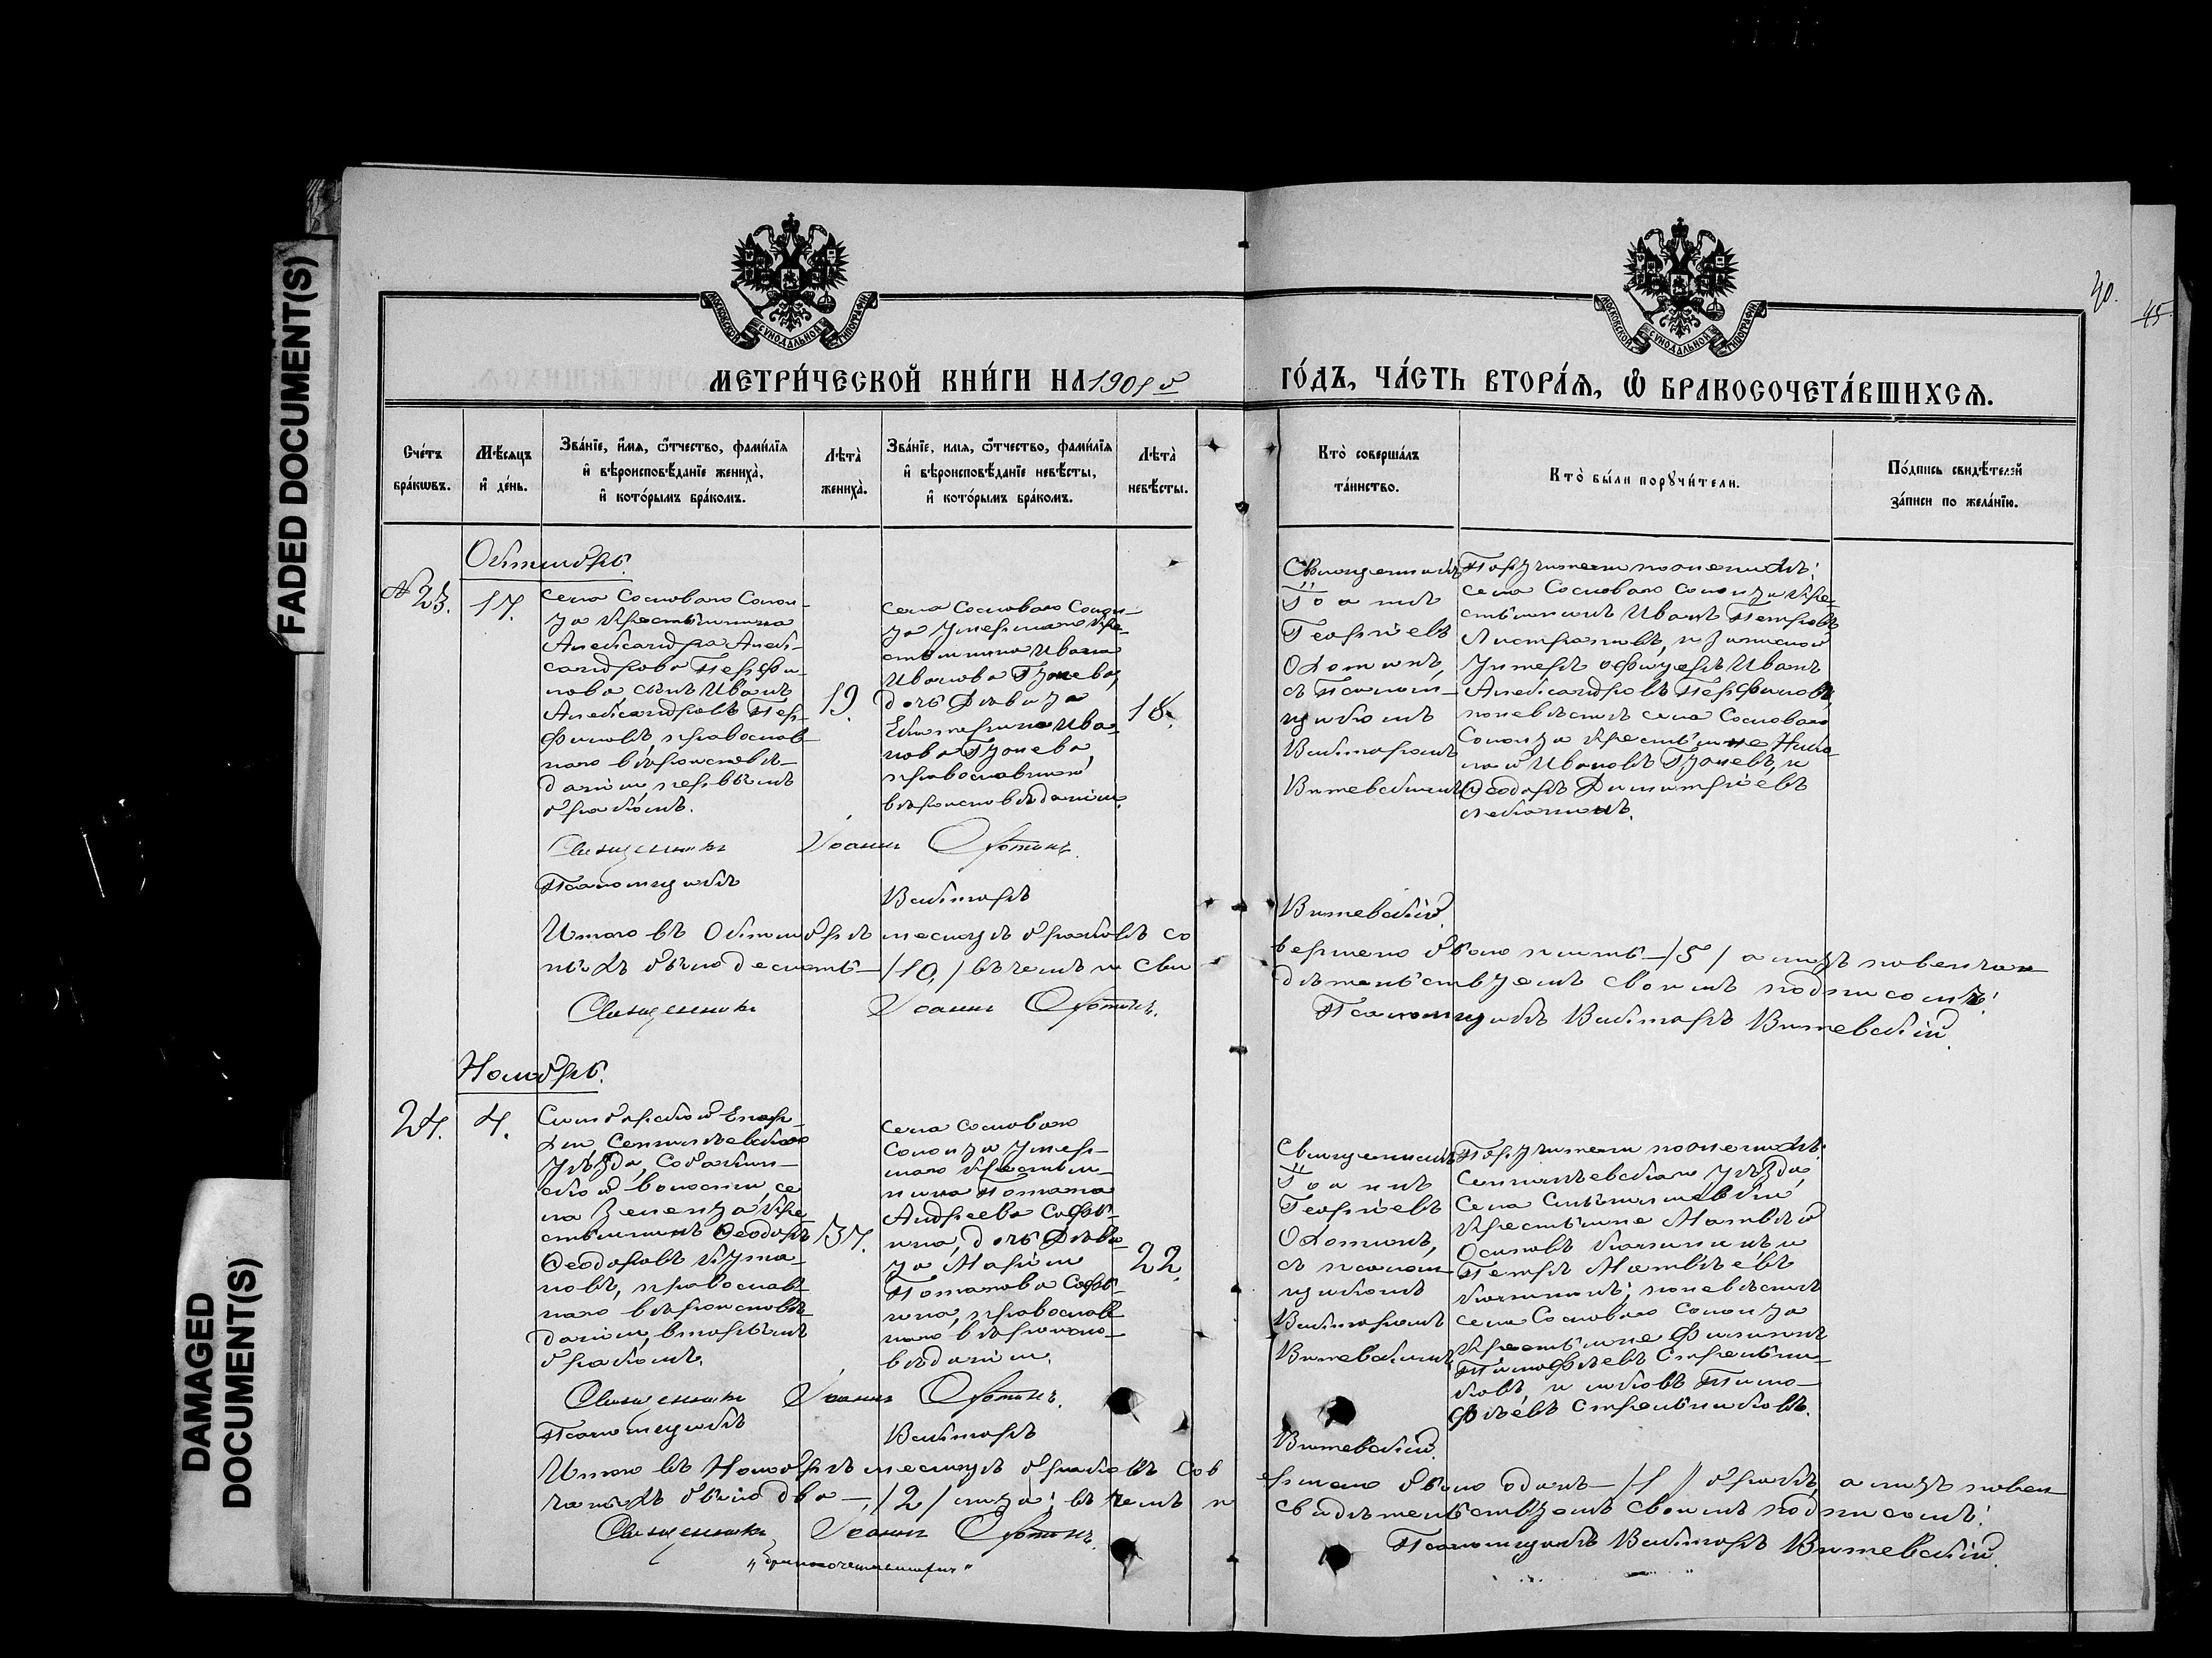 FADED DOCUMENT(S)
DAMAGED
DOCUMENT(S)
МОСКОВСКОЙ СѴНОДАЛЬНОЙ ТИПОГРАФІИ
МОСКОВСКОЙ СѴНОДАЛЬНОЙ ТИПОГРАФІИ
40.
45
МЕТРИ́ЧЕСКОЙ КНИ́ГИ НА 190
ГО́ДЪ, ЧА́СТЬ ВТОРА́Ѧ, Ѽ БРАКОСОЧЕТА́ВШИХСѦ.
Сче́тъ
бра́кѡвъ.
Мѣ́сяцъ
и҆ де́нь.
Зва́нїе, и҆́мя, ѻ҆́тчество, фами́лїя
и҆ вѣроисповѣ́данїе жениха̀,
и҆ кото́рымъ бра́комъ.
Лѣта̀
жениха̀.
Зва́нїе, имя, ѻ҆́тчество, фами́лїя
и҆ вѣроисповѣ́данїе невѣ́сты,
и҆ кото́рымъ бра́комъ.
Лѣта̀
невѣ́сты.
Кто̀ соверша́лъ
та́инство.
Кто̀ бы́ли порꙋчи́тели.
По́дпись свидѣ́телей
за́писи по жела́нїю.
Октябрь.
№ 23.
17.
села Сосноваго Солон-
ца крестьянина
Александра Алек-
сандрова Перфи-
лова сынъ Иванъ
Александровъ Пер-
филовъ, православ-
наго вѣроисповѣ-
данія, первымъ
бракомъ.
19.
села Сосноваго Солон-
ца умершаго кре-
стьянина Ивана
Иванова
дочь дѣвица
Екатерина Ива-
нова
православнаго
вѣроисповѣданія.
18.
Священникъ
Іоаннъ
Георгіевъ
Охотинъ,
съ псалом-
щикомъ
Викторомъ
Витевскимъ
Поручители по женихѣ:
села Сосноваго Солонца кре-
стьянинъ Иванъ Петровъ
и запасной
унтеръ офицеръ Иванъ
Александровъ Перфиловъ,
по невѣстѣ села Сосноваго
Солонца крестьяне Нико-
лай Ивановъ и
Ѳеодоръ Димитріевъ
Священникъ Іоаннъ Охотинъ.
Псаломщикъ Викторъ Витевскій.
Итого въ Октябрѣ месяцѣ браковъ совершено было пять—/5/ а лицъ повенчан-
ныхъ было десять—/10,/ въ чемъ и свидѣтельствуемъ своимъ подписомъ:
Священникъ Іоаннъ Охотинъ. Псаломщикъ Викторъ Витевскій.
Ноябрь.
24.
4.
Симбирской Епар-
хіи Сенгилеевскаго
уѣзда, Собакин-
ской волости се-
ла Зеленца кре-
стьянинъ Ѳеодоръ
Ѳеодоровъ
православ-
наго вѣроисповѣ-
данія, вторымъ
бракомъ.
37.
села Сосноваго
Солонца умер-
шаго крестья-
нина Потапа
Андреева Софь-
ина, дочь дѣви-
ца Марія
Потапова Софь-
ина, православ-
наго вѣроиспо-
вѣданія.
22.
Священникъ
Іоаннъ
Георгіевъ
Охотинъ,
съ псалом-
щикомъ
Викторомъ
Витевскимъ
Поручители по женихѣ:
Сенгилеевскаго уѣзда,
села
крестьяне Матвѣй
Осиповъ и
Петръ Матвѣевъ
по невѣстѣ
села Сосноваго Солонца
крестьяне Филиппъ
Тимофѣевъ Стрельни-
ковъ, и Яковъ Тимо-
фѣевъ Стрельниковъ.
Священникъ Іоаннъ Охотинъ.
Псаломщикъ Викторъ Витевскій.
Итого въ Ноябрѣ месяцѣ браковъ совершено было одинъ—/1/ бракъ, а лицъ повен-
чаныхъ было два—,/2/ лица; въ чемъ и свидѣтельствуемъ своимъ подписомъ:
Священникъ Іоаннъ Охотинъ. Псаломщикъ Викторъ Витевскій.